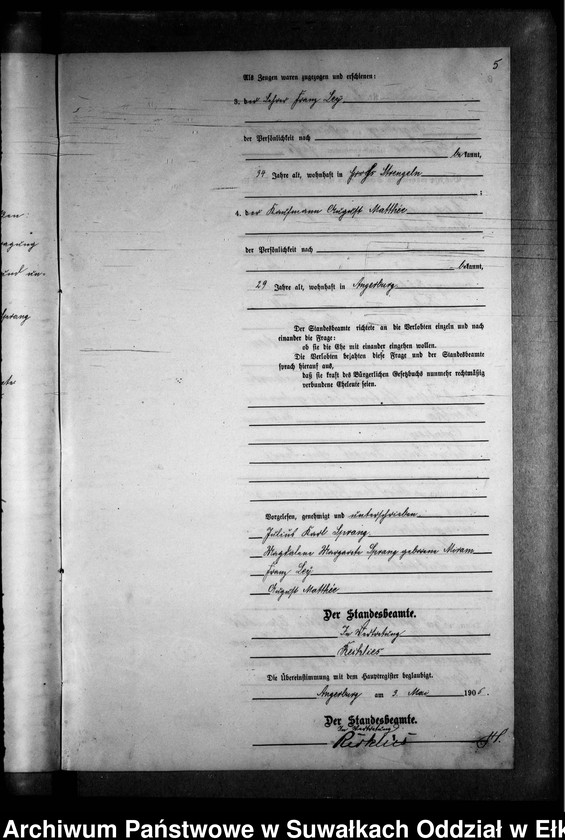 5
Als Zeugen waren zugezogen und erschienen:
3. der Lehrer Franz Ley
der Persönlichkeit nach
bekannt,
34 Jahre alt, wohnhaft in Groß Strengeln
;
4. der Kaufmann August Matthée
der Persönlichkeit nach
bekannt,
29 Jahre alt, wohnhaft in Angerburg.
Der Standesbeamte richtete an die Verlobten einzeln und nach
einander die Frage:
ob sie die Ehe mit einander eingehen wollen.
Die Verlobten bejahten diese Frage und der Standesbeamte
sprach hierauf aus,
daß sie kraft des Bürgerlichen Gesetzbuchs nunmehr rechtmäßig
verbundene Eheleute seien.
Vorgelesen, genehmigt und unterschrieben
Julius Karl Sprang
Magdalene Margarete Sprang geborene
Franz Ley
August Matthée
Der Standesbeamte.
In Vertretung
Die Übereinstimmung mit dem Hauptregister beglaubigt.
Angerburg am 3. Mai 1906.
Der Standesbeamte.
In Vertretung
Archiwum Państwowe w Suwałkach Oddział w Ełk